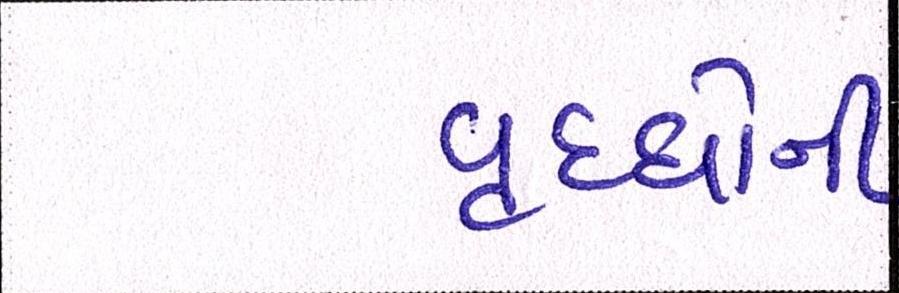 વૃદ્ધોની